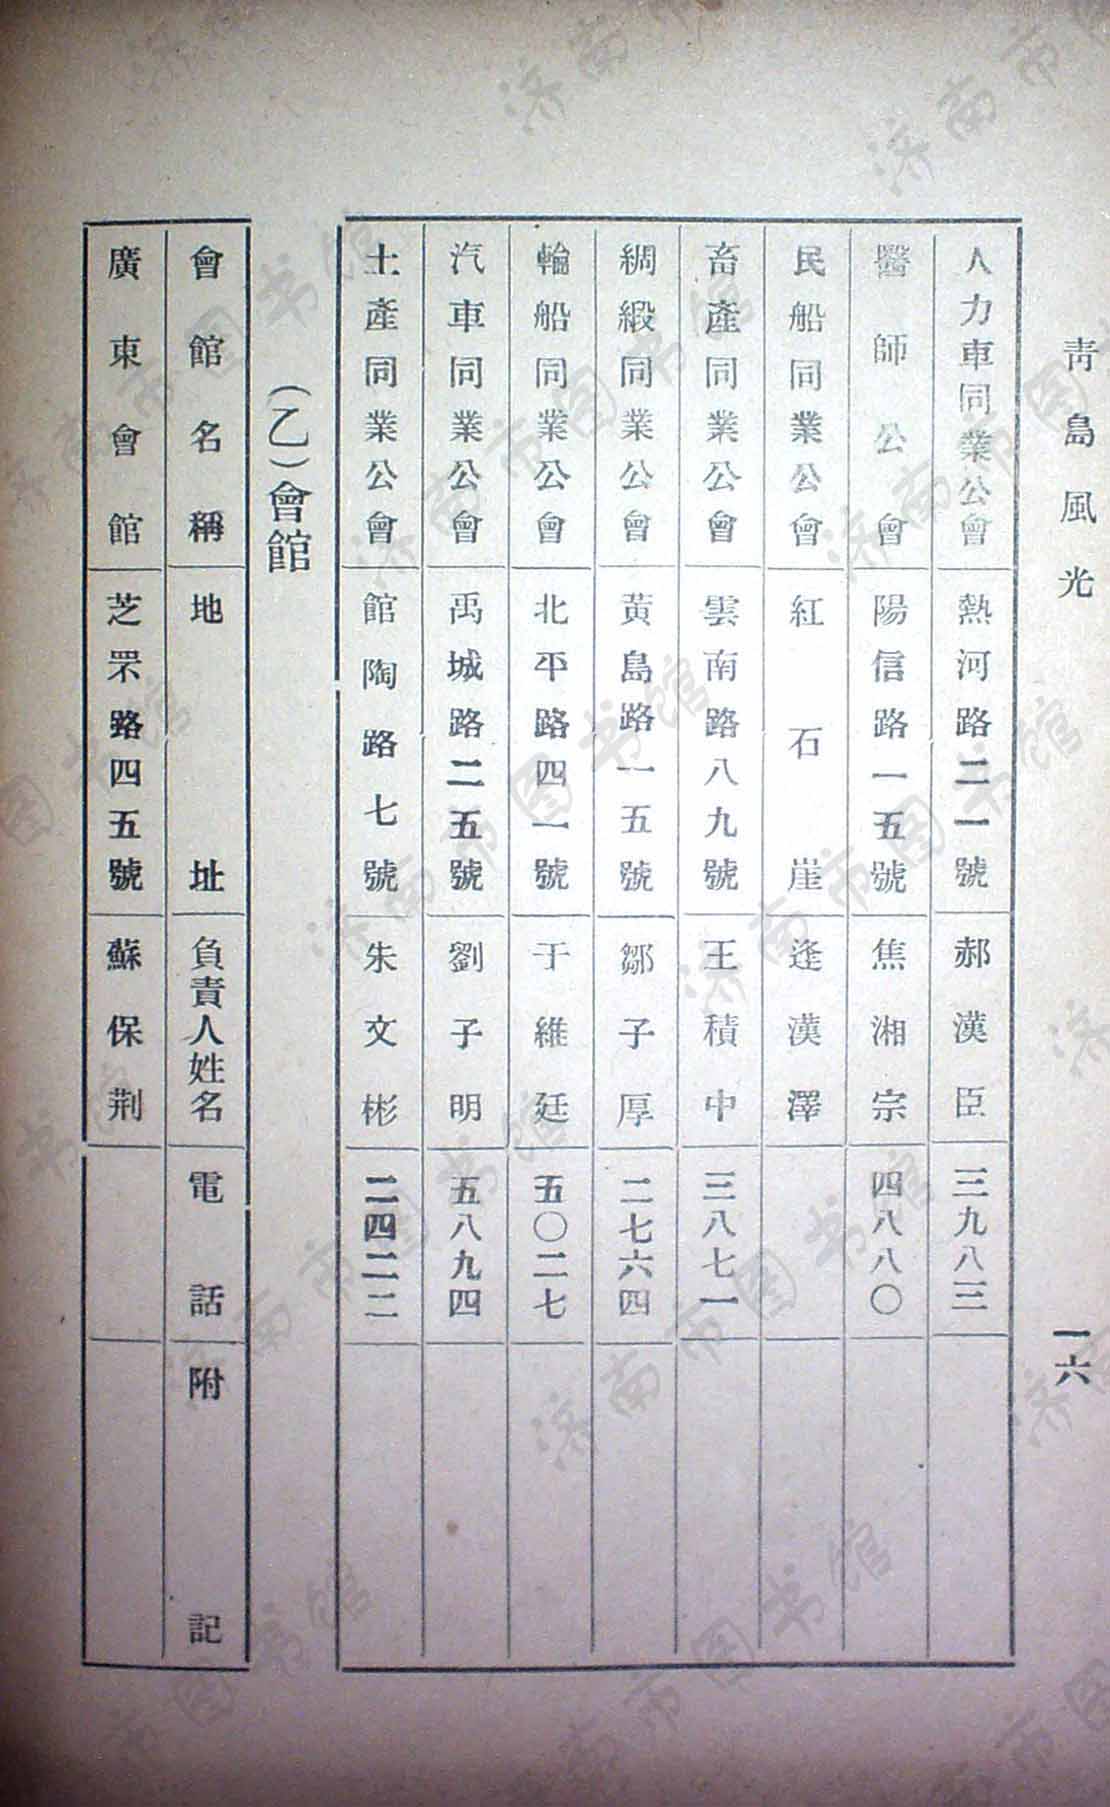 青島風光
一六
人力車同業公會 熱河路二一號 郝漢臣 三九八三
醫師公會 陽信路一五號 焦湘宗 四八八〇
民船同業公會 紅石崖 逄漢澤
畜產同業公會 雲南路八九號 王積中 三八七一
綢緞同業公會 黃島路一五號 鄒子厚 二七六四
輪船同業公會 北平路四一號 于維廷 五〇二七
汽車同業公會 禹城路二五號 劉子明 五八九四
土產同業公會 館陶路七號 朱文彬 二四二二
(乙)會館
會館名稱 地址 負責人姓名 電話 附記
廣東會館 芝罘路四五號 蘇保荆
济南市图书馆